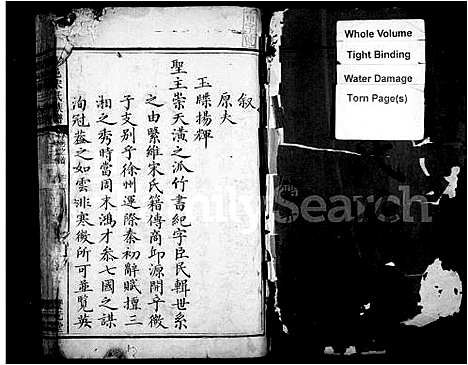 叙
原夫
玉牒揚輝
聖主崇天潢之派竹書紀字臣民輯世系
之由緊維宋氏籍傳商邱源開乎微
子支别乎徐州運際秦初辭賦擅三
湘之秀時當周末鴻才叅七國之謀
洵冠葢之如雲非寒微所可並覽英
Whole Volume
Tight Binding
Water Damage
Torn Page(s)
FamilySearch